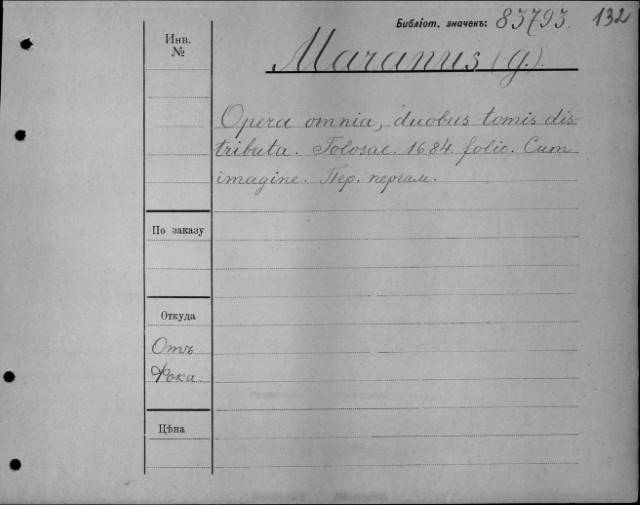 Библіот. значенъ: 83793. 132
Инв.
№
Maranus (G.)
Opera omnia, duobus tomis dis-
tributa. Tolosae. 1684. folio. Cum
imagine. Пер. пергам.
По заказу
Откуда
Отъ
Фока.
Цѣна